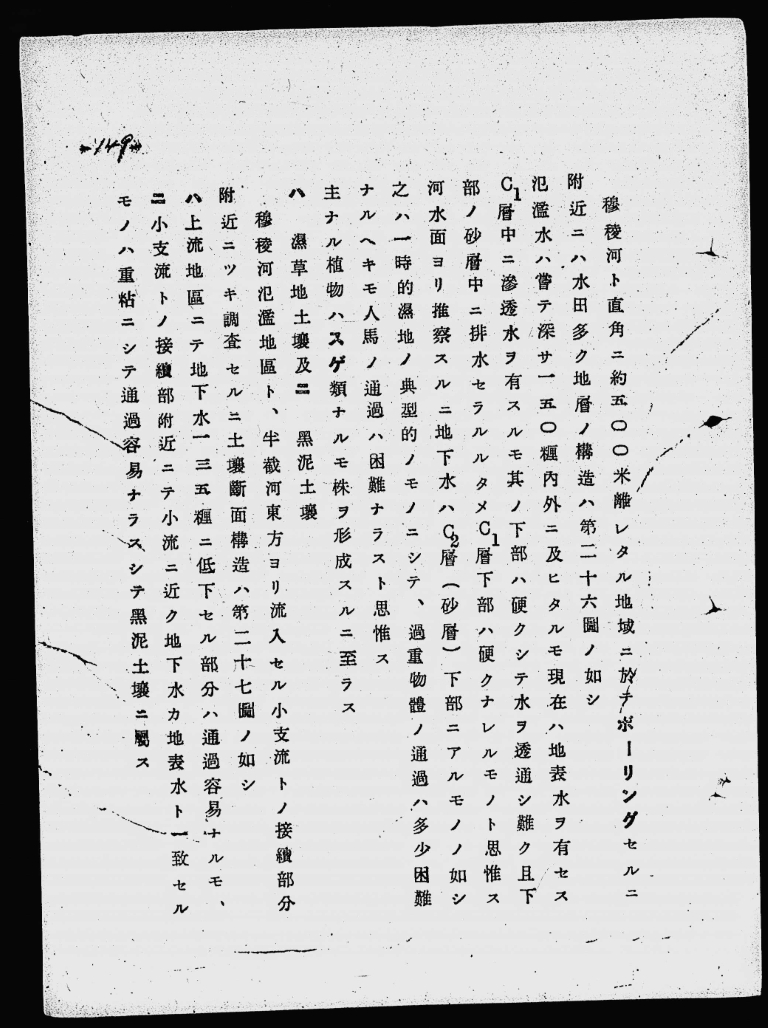 149
穆稜河ト直角ニ約五〇〇米離レタル地域ニ於テボーリングセルニ
附近ニハ水田多ク地層ノ構造ハ第二十六圖ノ如シ
氾濫水ハ嘗テ深サ一五〇糎內外ニ及ヒタルモ現在ハ地表水ヲ有セス
C1層中ニ滲透水ヲ有スルモ其ノ下部ハ硬クシテ水ヲ透通シ難ク且下
部ノ砂層中ニ排水セラルルタメC1層下部ハ硬クナレルモノト思惟ス
河水面ヨリ推察スルニ地下水ハC2層(砂層)下部ニアルモノノ如シ
之ハ一時的濕地ノ典型的ノモノニシテ、過重物體ノ通過ハ多少困難
ナルヘキモ人馬ノ通過ハ困難ナラスト思惟ス
主ナル植物ハスゲ類ナルモ株ヲ形成スルニ至ラス
ハ 濕草地土壤及ニ 黑泥土壤
穆稜河氾濫地區ト、半截河東方ヨリ流入セル小支流トノ接續部分
附近ニツキ調査セルニ土壤斷面構造ハ第二十七圖ノ如シ
ハ上流地區ニテ地下水一三五糎ニ低下セル部分ハ通過容易ナルモ、
ニ小支流トノ接續部附近ニテ小流ニ近ク地下水カ地表水ト一致セル
モノハ重粘ニシテ通過容易ナラスシテ黑泥土壤ニ屬ス